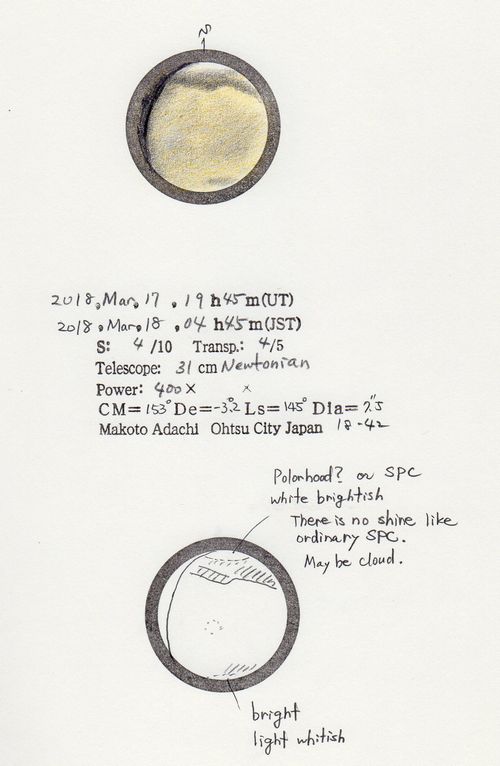 S
2018, Mar, 17, 19 h45m(UT)
2018, Mar, 18, 04 h45m(JST)
S: 4 /10 Transp.: 4/5
Telescope: 31 cm Newtonian
Power: 400X X
CM=153° De=-3.°2 Ls=145° Dia=7."5
Makoto Adachi Ohtsu City Japan 18-42
Polorhood? or SPC
white brightish
There is no shine like
ordinary SPC.
May be cloud.
bright
light whitish